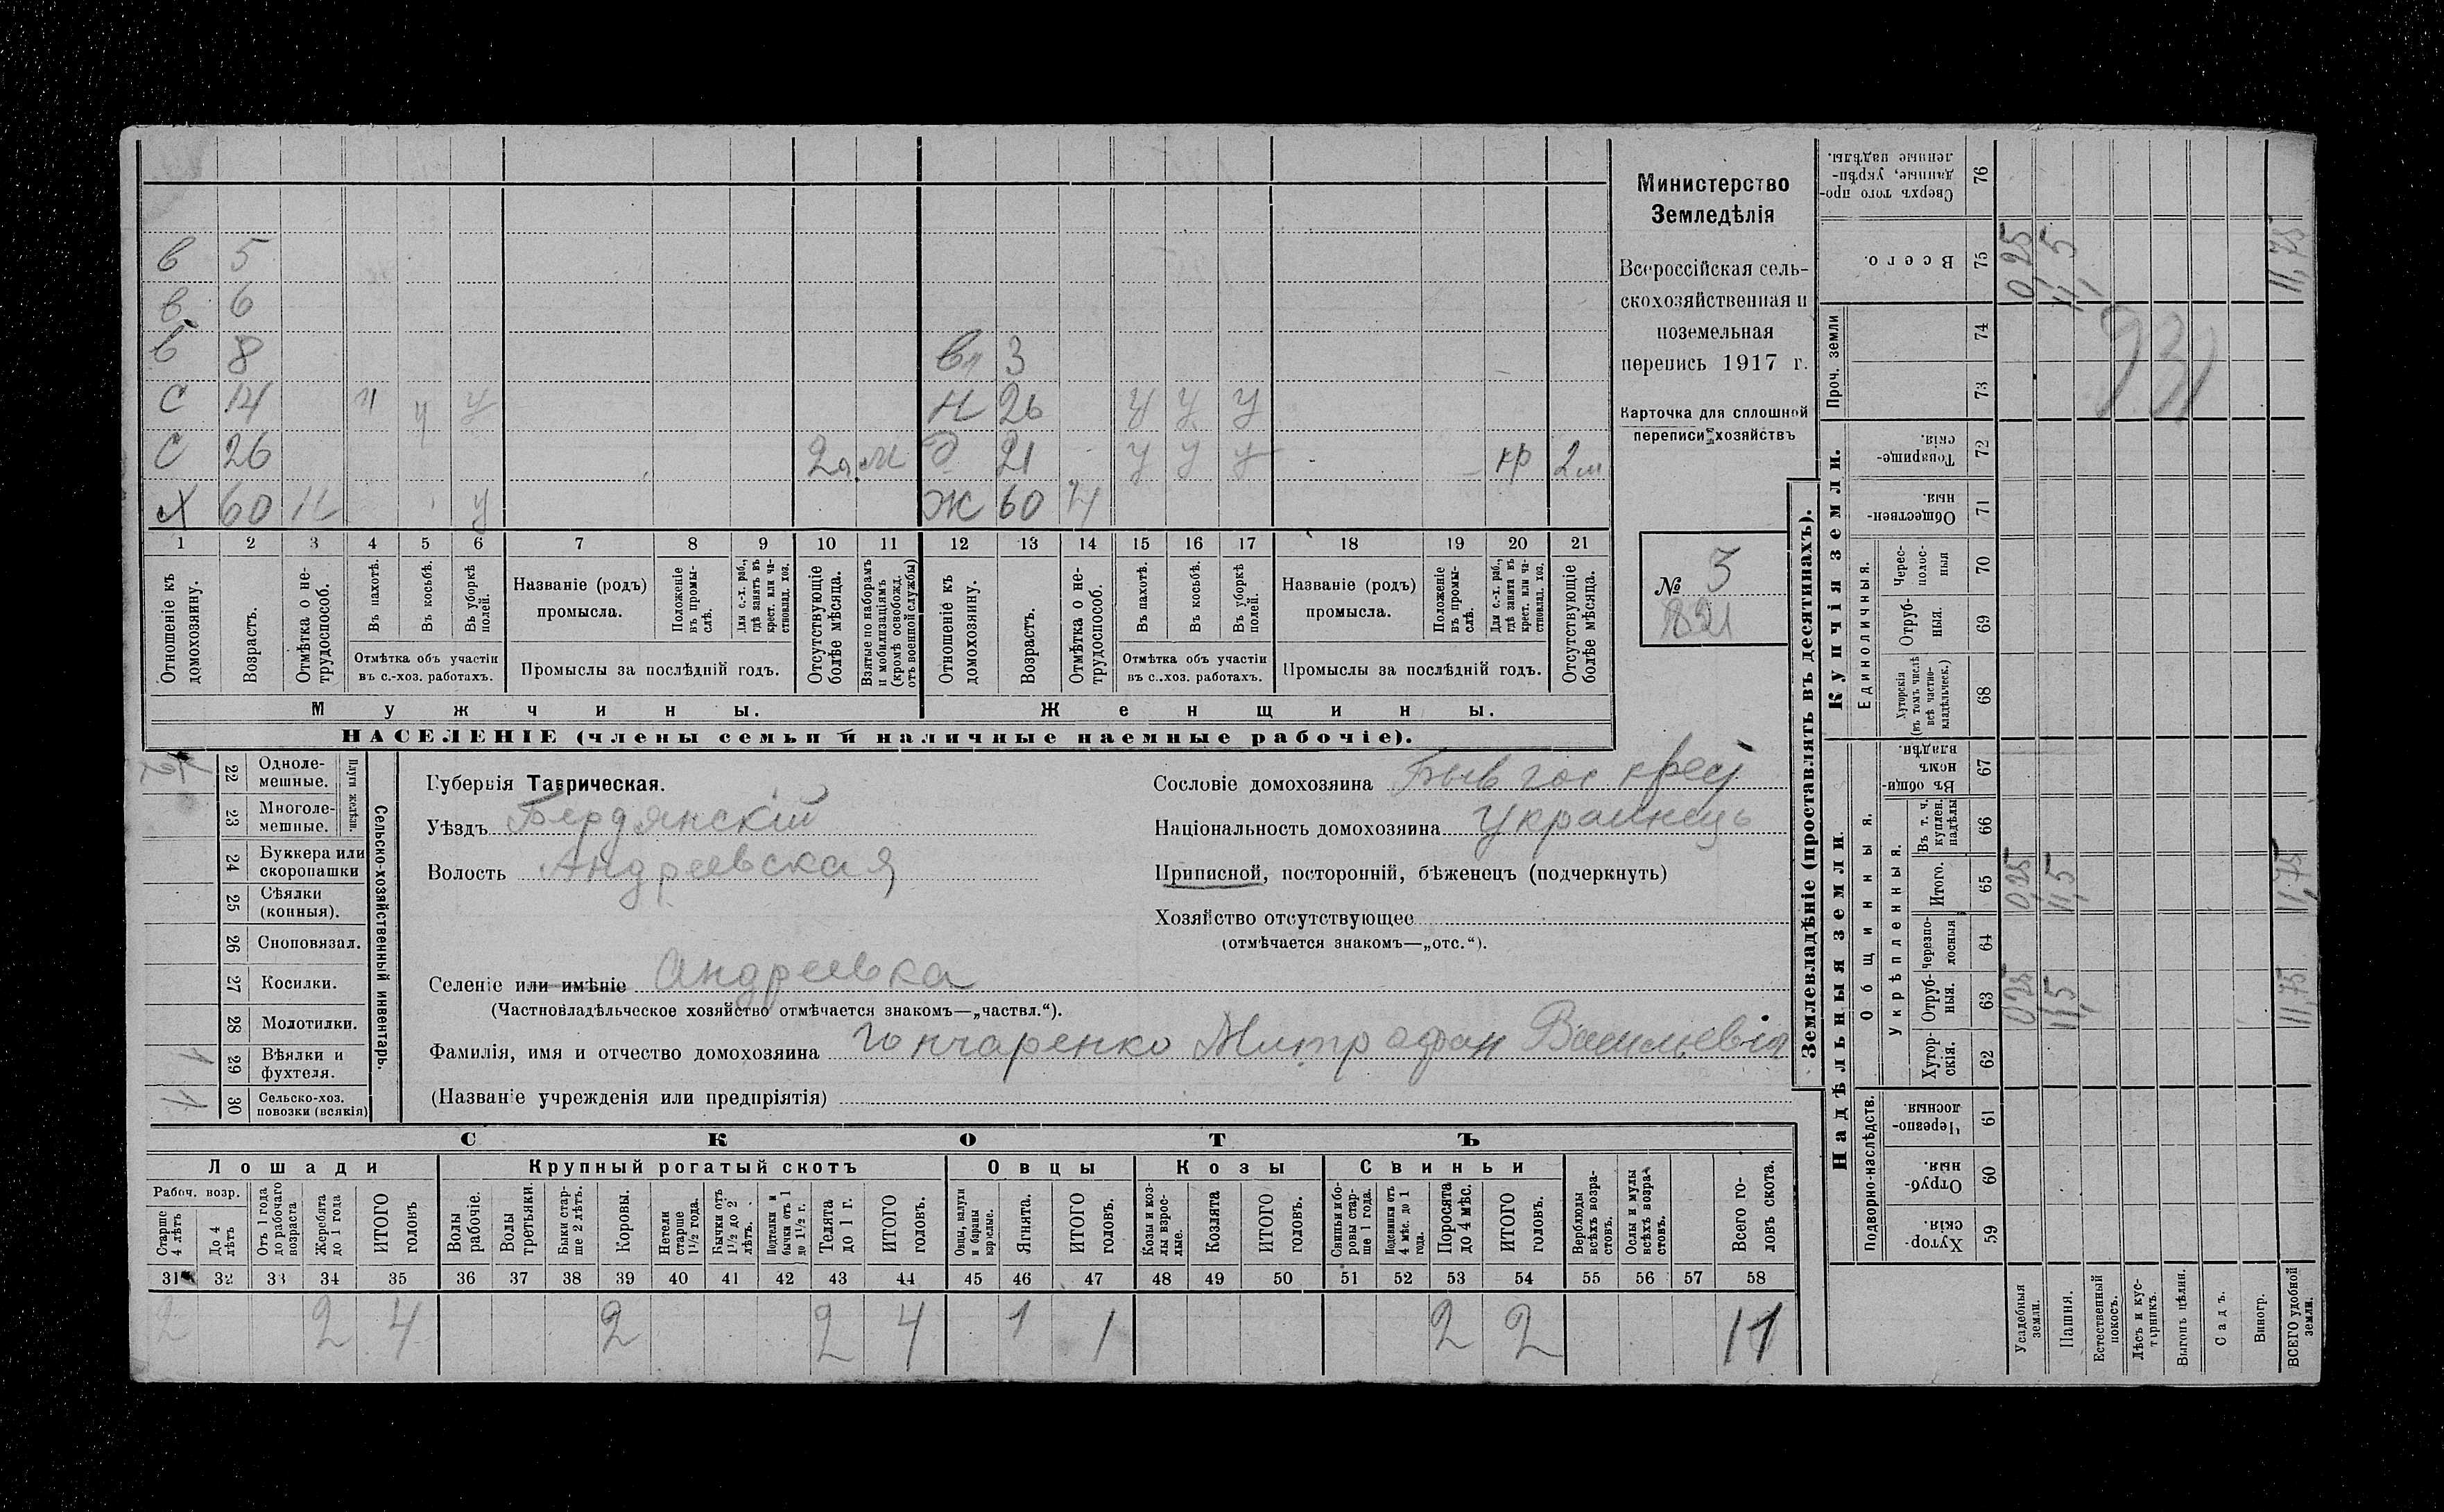 в 5
в 6
в 8 вн 3
с 14 ч ч у н 26 у у у
с 26 2 а м д 21 у у у кр 2 м
х 60 н у ж 60 н
1 2 3 4 5 6 7 8 9 10 11 12 13 14 15 16 17 18 19 20 21
Отношеніе къ домохозяину.
Возрастъ.
Отмѣтка о не-трудоспособ.
Въ пахотѣ.
Въ косьбѣ.
Въ уборкѣ полей.
Отмѣтка объ участіи
въ с.-хоз. работахъ.
Названіе (родъ)
промысла.
Положеніе въ промы-слѣ.
Для с.-х. раб., гдѣ занятъ въ крест. или ча-стновлад. хоз.
Промыслы за послѣдній годъ.
Отсутствующіе болѣе мѣсяца.
Взятые по наборамъ и мобилизаціямъ (кромѣ освобожд. отъ военной службы)
Отношеніе къ домохозяину.
Возрастъ.
Отмѣтка о не-трудоспособ.
Въ пахотѣ.
Въ косьбѣ.
Въ уборкѣ полей.
Отмѣтка объ участіи
въ с..хоз. работахъ.
Названіе (родъ)
промысла.
Положеніе въ промы-слѣ.
Для с.-х. раб., гдѣ занятъ въ крест. или ча-стновлад. хоз.
Промыслы за послѣдній годъ.
Отсутствующіе болѣе мѣсяца.
Мужчины. Женщины.
НАСЕЛЕНІЕ (члены семьи и наличные наемные рабочіе).
Министерство
Земледѣлія
Всероссійская сель-
скохозяйственная и
поземельная
перепись 1917 г.
Карточка для сплошной
переписи хозяйствъ
№ 3
821
Сельско-хозяйственный инвентарь.
Плуги желѣзн.
22 Одноле-
мешные.
23 Многоле-
мешные.
24 Буккера или
скоропашки
25 Сѣялки
(конныя).
26 Сноповязал.
27 Косилки.
28 Молотилки.
1 29 Вѣялки и
фухтеля.
1 30 Сельско-хоз.
повозки (всякія)
Губернія Таврическая.
Уѣздъ Бердянскій
Волость Андреевская
Селеніе или имѣніе Андреевка
(Частновладѣльческое хозяйство отмѣчается знакомъ—„частвл.“).
Фамилія, имя и отчество домохозяина Гончаренко Митрофан Васильевич
(Названіе учрежденія или предпріятія)
Сословіе домохозяина Быв гос крес
Національность домохозяина Украинець
Приписной, посторонній, бѣженецъ (подчеркнуть)
Хозяйство отсутствующее
(отмѣчается знакомъ—„отс.“).
СКОТЪ
Лошади Крупный рогатый скотъ Овцы Козы Свиньи
Рабоч. возр.
Старше 4 лѣтъ
До 4 лѣтъ
Отъ 1 года до рабочаго возраста
Жеребята до 1 года
ИТОГО головъ
Волы рабочіе.
Волы третьяки.
Быки стар-ше 2 лѣтъ.
Коровы.
Нетели старше 1½ года.
Бычки отъ 1½ до 2 лѣтъ.
Подтелки и бычки отъ 1 до 1½ г.
Телята до 1 г.
ИТОГО головъ.
Овцы, валухи и бараны взрослые.
Ягнята.
ИТОГО головъ.
Козы и коз-лы взрос-лые.
Козлята
ИТОГО головъ.
Свиньи и бо-ровы стар-ше 1 года.
Подсвинки отъ 4 мѣс. до 1 года.
Поросята до 4 мѣс.
ИТОГО головъ.
Верблюды всѣхъ возра-стовъ.
Ослы и мулы всѣхъ возра-стовъ.
Всего го-ловъ скота.
31 32 33 34 35 36 37 38 39 40 41 42 43 44 45 46 47 48 49 50 51 52 53 54 55 56 57 58
2 2 4 2 2 4 1 1 2 2 11
Землевладѣніе (проставлять въ десятинахъ).
Надѣльныя земли. Купчія земли. Проч. земли
Подворно-наслѣдств.
Общинныя.
Укрѣпленныя.
Единоличныя.
Хутор-скія. 59
Отруб-ныя. 60
Черезпо-лосныя. 61
Хутор-скія. 62
Отруб-ныя. 63 0,25 11,5 11,75
Черезпо-лосныя 64
Итого. 65 0,25 11,5 11,75
Въ т. ч. куплен. надѣлы 66
Въ общи-номъ владѣн. 67
Хуторскія (въ томъ числѣ всѣ частно-владѣльческ.) 68
Отруб-ныя. 69
Черес-полос-ныя 70
Обществен-ныя. 71
Товарище-скія. 72
73
74
Всего. 75 0,25 11,5 11,75
Сверхъ того про-данные, укрѣп-ленные надѣлы. 76
931
Усадебныя земли.
Пашня.
Естественный покосъ.
Лѣсъ и кус-тарникъ.
Выгонъ цѣлин.
Садъ.
Виногр.
ВСЕГО удобной земли.